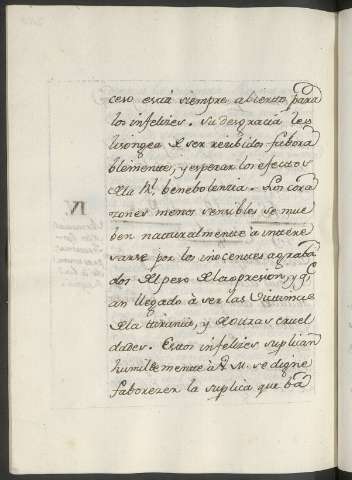 ceso está siempre abierto para
los infelizes. Su desgracia les
lisongea de ser recibidos fabora
blemente, y esperar los efectos
de la Rl. benebolencia. Los cora
zones menos sensibles se mue
ben naturalmente à intere
sarse por los inocentes agraba
dos del peso de la opresion, y qe.
an llegado à ser las Victimas
de la tirania, y de otras cruel
dades. Estos infelizes suplican
humildemente à V. M. se digne
faborezer la suplica que ban